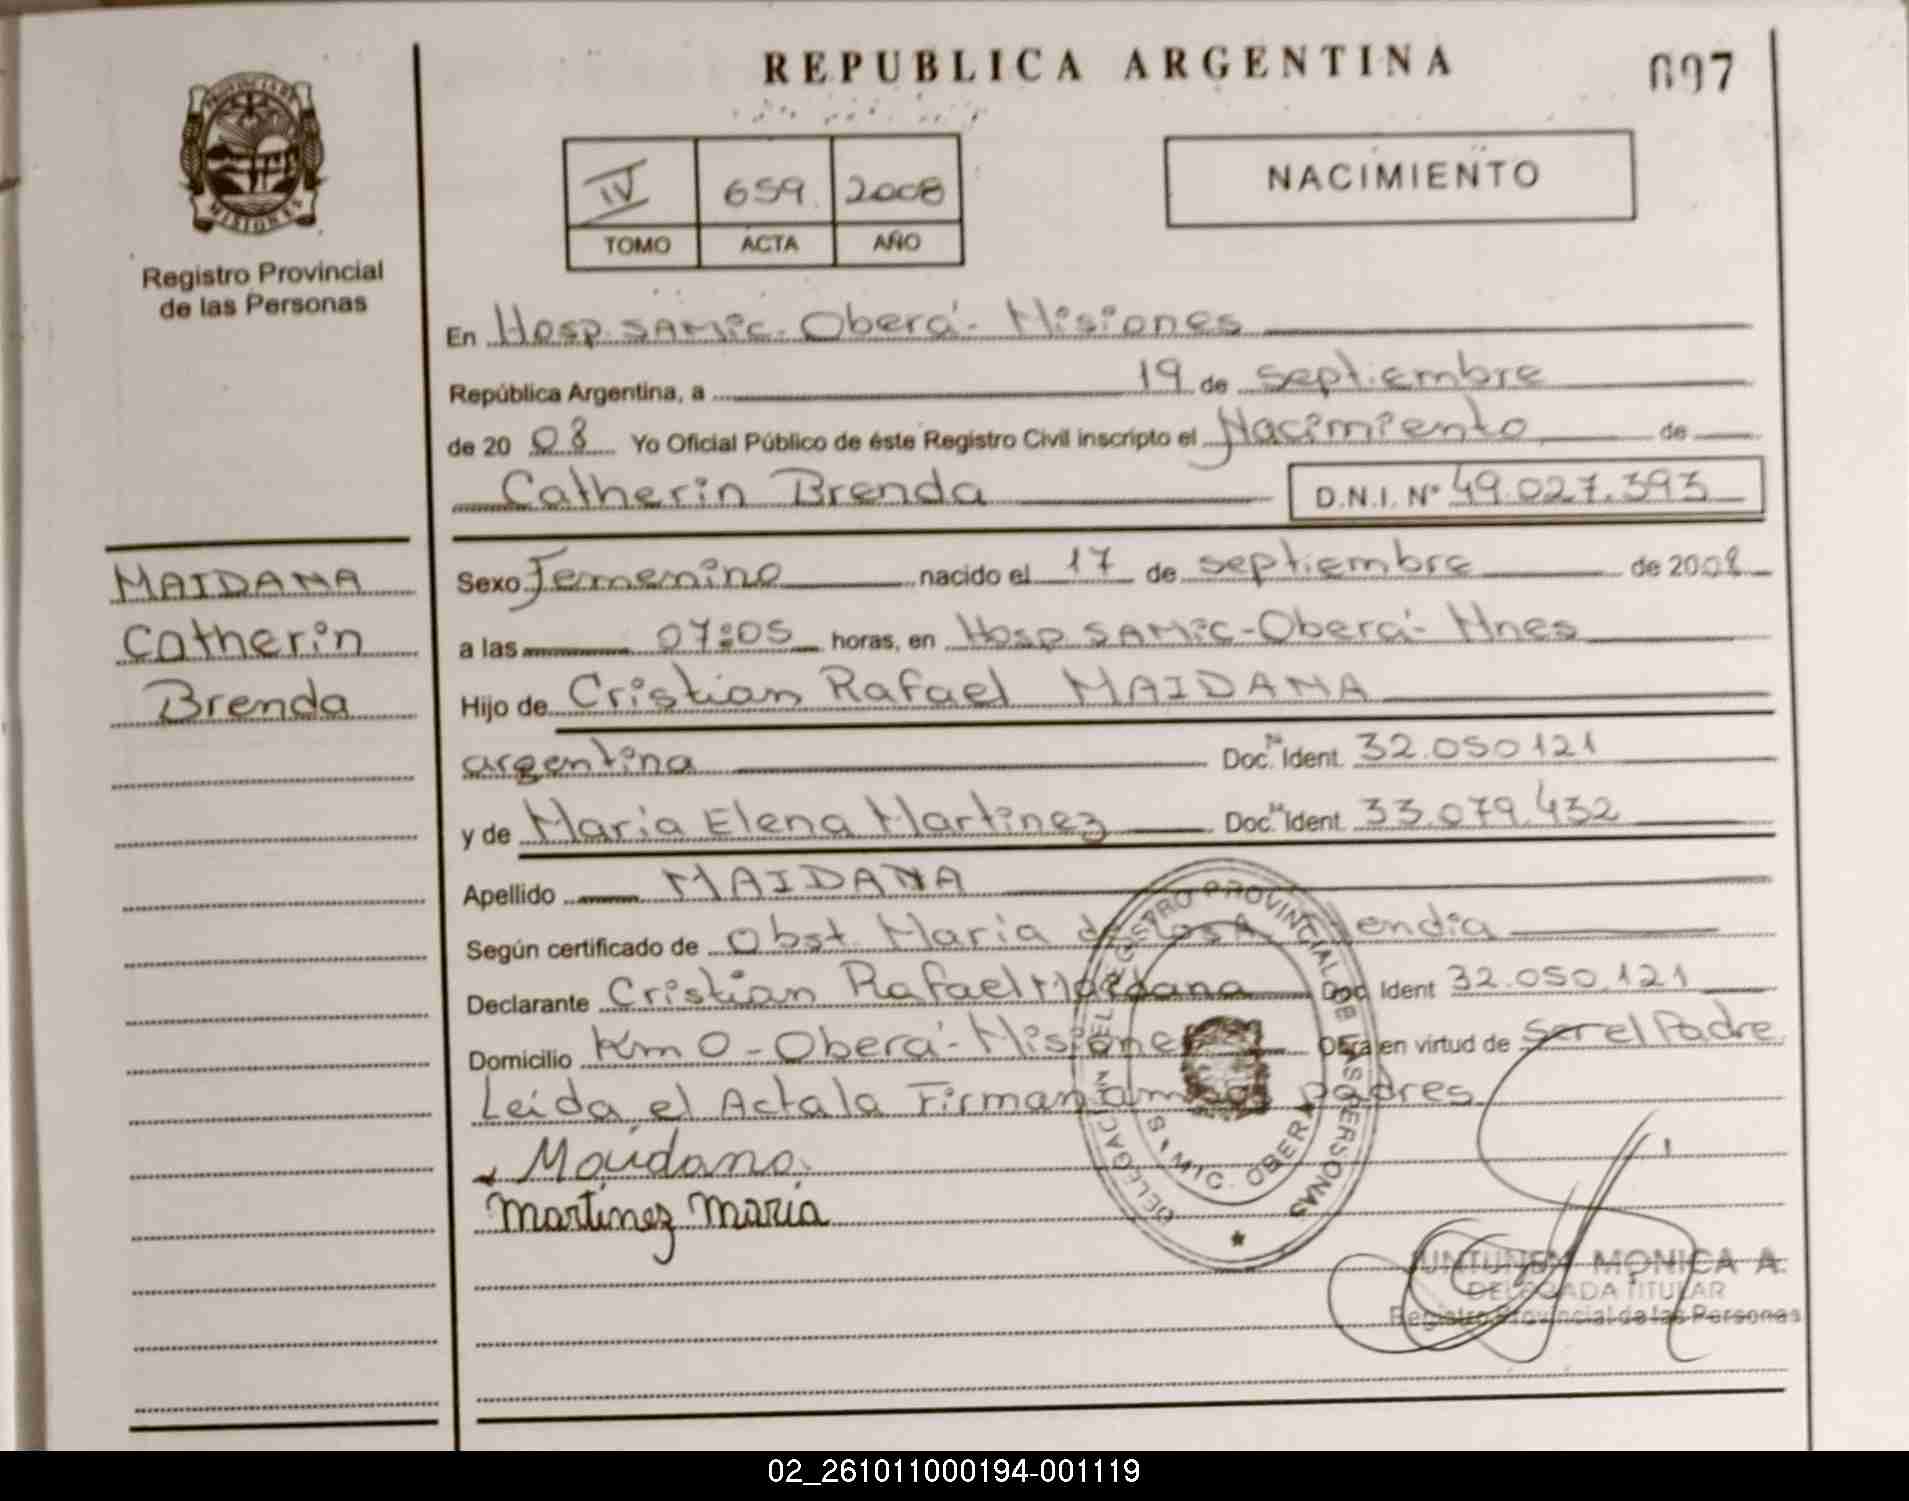 REPUBLICA ARGENTINA
697
PROVINCIA DE
MISIONES
Registro Provincial
de las Personas
IV 659 2008
TOMO ACTA AÑO
NACIMIENTO
En Hosp. SAMic - Oberá - Misiones
República Argentina, a 19 de septiembre
de 2008 Yo Oficial Público de éste Registro Civil inscripto el Nacimiento de
Catherin Brenda D.N.I. Nº 49.027.393
MAIDANA
Catherin
Brenda
Sexo Femenino nacido el 17 de septiembre de 2008
a las 07:05 horas, en Hosp SAMic - Oberá - Mnes
Hijo de Cristian Rafael MAIDANA
argentina Doc. Ident. 32.050.121
y de Maria Elena Martinez Doc. Ident. 33.079.432
Apellido MAIDANA
Según certificado de Obst. Maria de
Declarante Cristian Rafael Maidana Doc. Ident 32.050.121
Domicilio Km 0 - Oberá - Misiones Obra en virtud de Ser el Padre
Leida el Acta la Firman ambos padres
Maidana
Martinez Maria
DELEGACION DEL REGISTRO PROVINCIAL DE LAS PERSONAS
OBERA
JUNTUNEN MONICA A.
DELEGADA TITULAR
Registro Provincial de las Personas
02_261011000194-001119